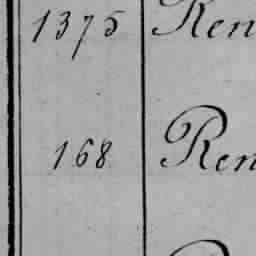 1375 Ren
168 Ren